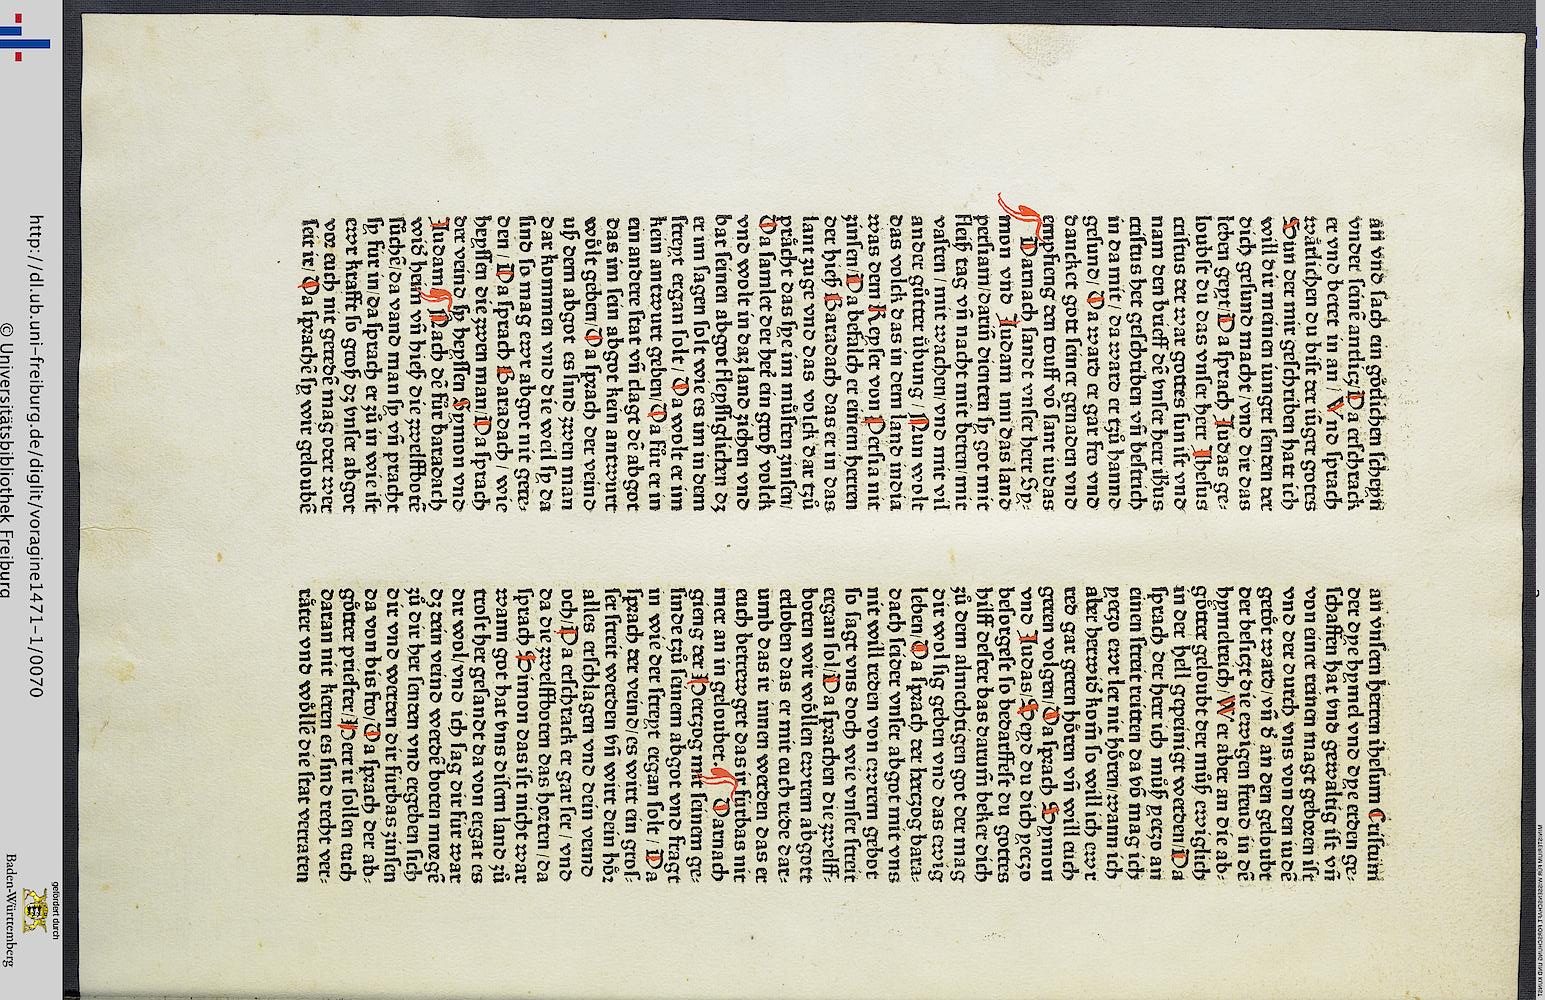 an vnd sach ein götlichen scheyn
vnder seinē antlicz/Da erschrack
er vnd betet in an/Vnd sprach
wårlichen du bist der iūger gotes
Sun der mir geschriben hatt ich
will dir meinen iunger senden der
dich gesund macht/vnd dir das
leben geyt/Da sprach Judas ge⸗
loubst du das vnser herr Jhesus
cristus der war gottes sun ist vnd
nam den brieff dē vnser herr ihūs
cristus het geschriben vn̄ bestrich
in da mit/da ward er czů hannd
gesund/Da ward er gar fro vnd
dancket gott seiner genaden vnd
empfieng den touff võ sant iudas
Darnach sandt vnser herr Sy⸗
mon vnd Judam inn das land
persiam/darin̄ dienten sy got mit
fleiß tag vn̄ nacht mit beten/mit
vasten/mit wachen/vnd mit vil
ander gůtter übung/Nun wolt
das volck das in dem land india
was dem Keyser von Persia nit
zinsen/Da befalch er einem herren
der hieß Baradach das er in das
lant zuge vnd das volck dar tzů
prächt das sye im müsten zinsen/
Da samlet der het ein groß volck
vnd wolt in daz land ziehen vnd
bat seinen abgot fleyssiglichen dz
er im sagen solt wie es im in dem
streyt ergan solt/Da wolt er im
kein antwurt geben/Da für er in
ein andere stat vn̄ clagt dē abgot
das im sein abgot kein antwurt
wölt geben/Da sprach der veind
uß dem abgot es sind zwen man
dar kommen vnd die weil sy da
sind so mag ewr abgot nit gere⸗
den/Da sprach Baradach/wie
heyssen die zwen man/Da sprach
der veind sy heyssen Symon vnd
Judam Nach dē für baradach
wid heim vn̄ hieß die zwelffbotē
süchē/da vand man sy vn̄ pracht
sy für in/da sprach er zů in wie ist
ewr krafft so groß dz vnser abgot
vor euch nit geredē mag oder wer
seit ir/Da sprachē sy wir geloubē
an vnsern herren ihesum Cristum
der dye hymel vnd dye erden ge⸗
schaffen hat vnd gewaltig ist vn̄
von einer reinen magt geboren ist
vnd der durch vns von den iudē
getöt ward/vn̄ d̄ an den geloubt
der besiczt die ewigen freud in dē
hymelreich/Wer aber an die ab⸗
götter geloubt der můß ewiglich
in der hell gepeinigt werden/Da
sprach der herr ich můß yeczo an
einen streit reitten da võ mag ich
yeczo ewr ler nit hören/wann ich
aber herwid̄ kom̄ so will ich ewr
red gar geren hören vn̄ will euch
geren volgen/Da sprach Symon
vnd Judas/Seyd du dich yeczo
besorgest so bedarffest du gottes
hilff dester bas darum̄ beker dich
zů dem almechtigen got der mag
dir wol sig geben vnd das ewig
leben/Da sprach der herczog bara⸗
dach seider vnser abgot mit vns
nit will reden von ewrem gebot
so sagt vns doch wie vnser streit
ergan sol/Da sprachen die zwelff⸗
boten wir wöllen ewrem abgott
erloben das er mit euch rede dar⸗
umb das ir innen werden das er
euch betrewget das ir fürbas nit
mer an in geloubet. Darnach
gieng der Herczog mit seinem ge⸗
sinde tzů seinem abgot vnd fragt
in wie der streyt ergan solt/Da
sprach der veind/es wirt ein gros⸗
ser streit werden vn̄ wirt dein hör
alles erschlagen vnd dein veind
och/Da erschrack er gar ser/vnd
da die zwelffboten das horten/da
sprach Simon das ist nicht war
wann got hat vns disem land zů
trost her gesandt da von ergat es
dir wol/vnd ich sag dir für war
dz dein veind werdē boten morgē
zů dir her senden vnd ergeben sich
dir vnd werden dir fürbas zinsen
da von bis fro/Da sprach der ab⸗
götter priester/Herr ir sollen euch
daran nit keren es sind recht ver⸗
räter vnd wöllē die stat verraten
http://dl.ub.uni-freiburg.de/diglit/voragine1471-1/0070
© Universitätsbibliothek Freiburg
gefördert durch
Baden-Württemberg